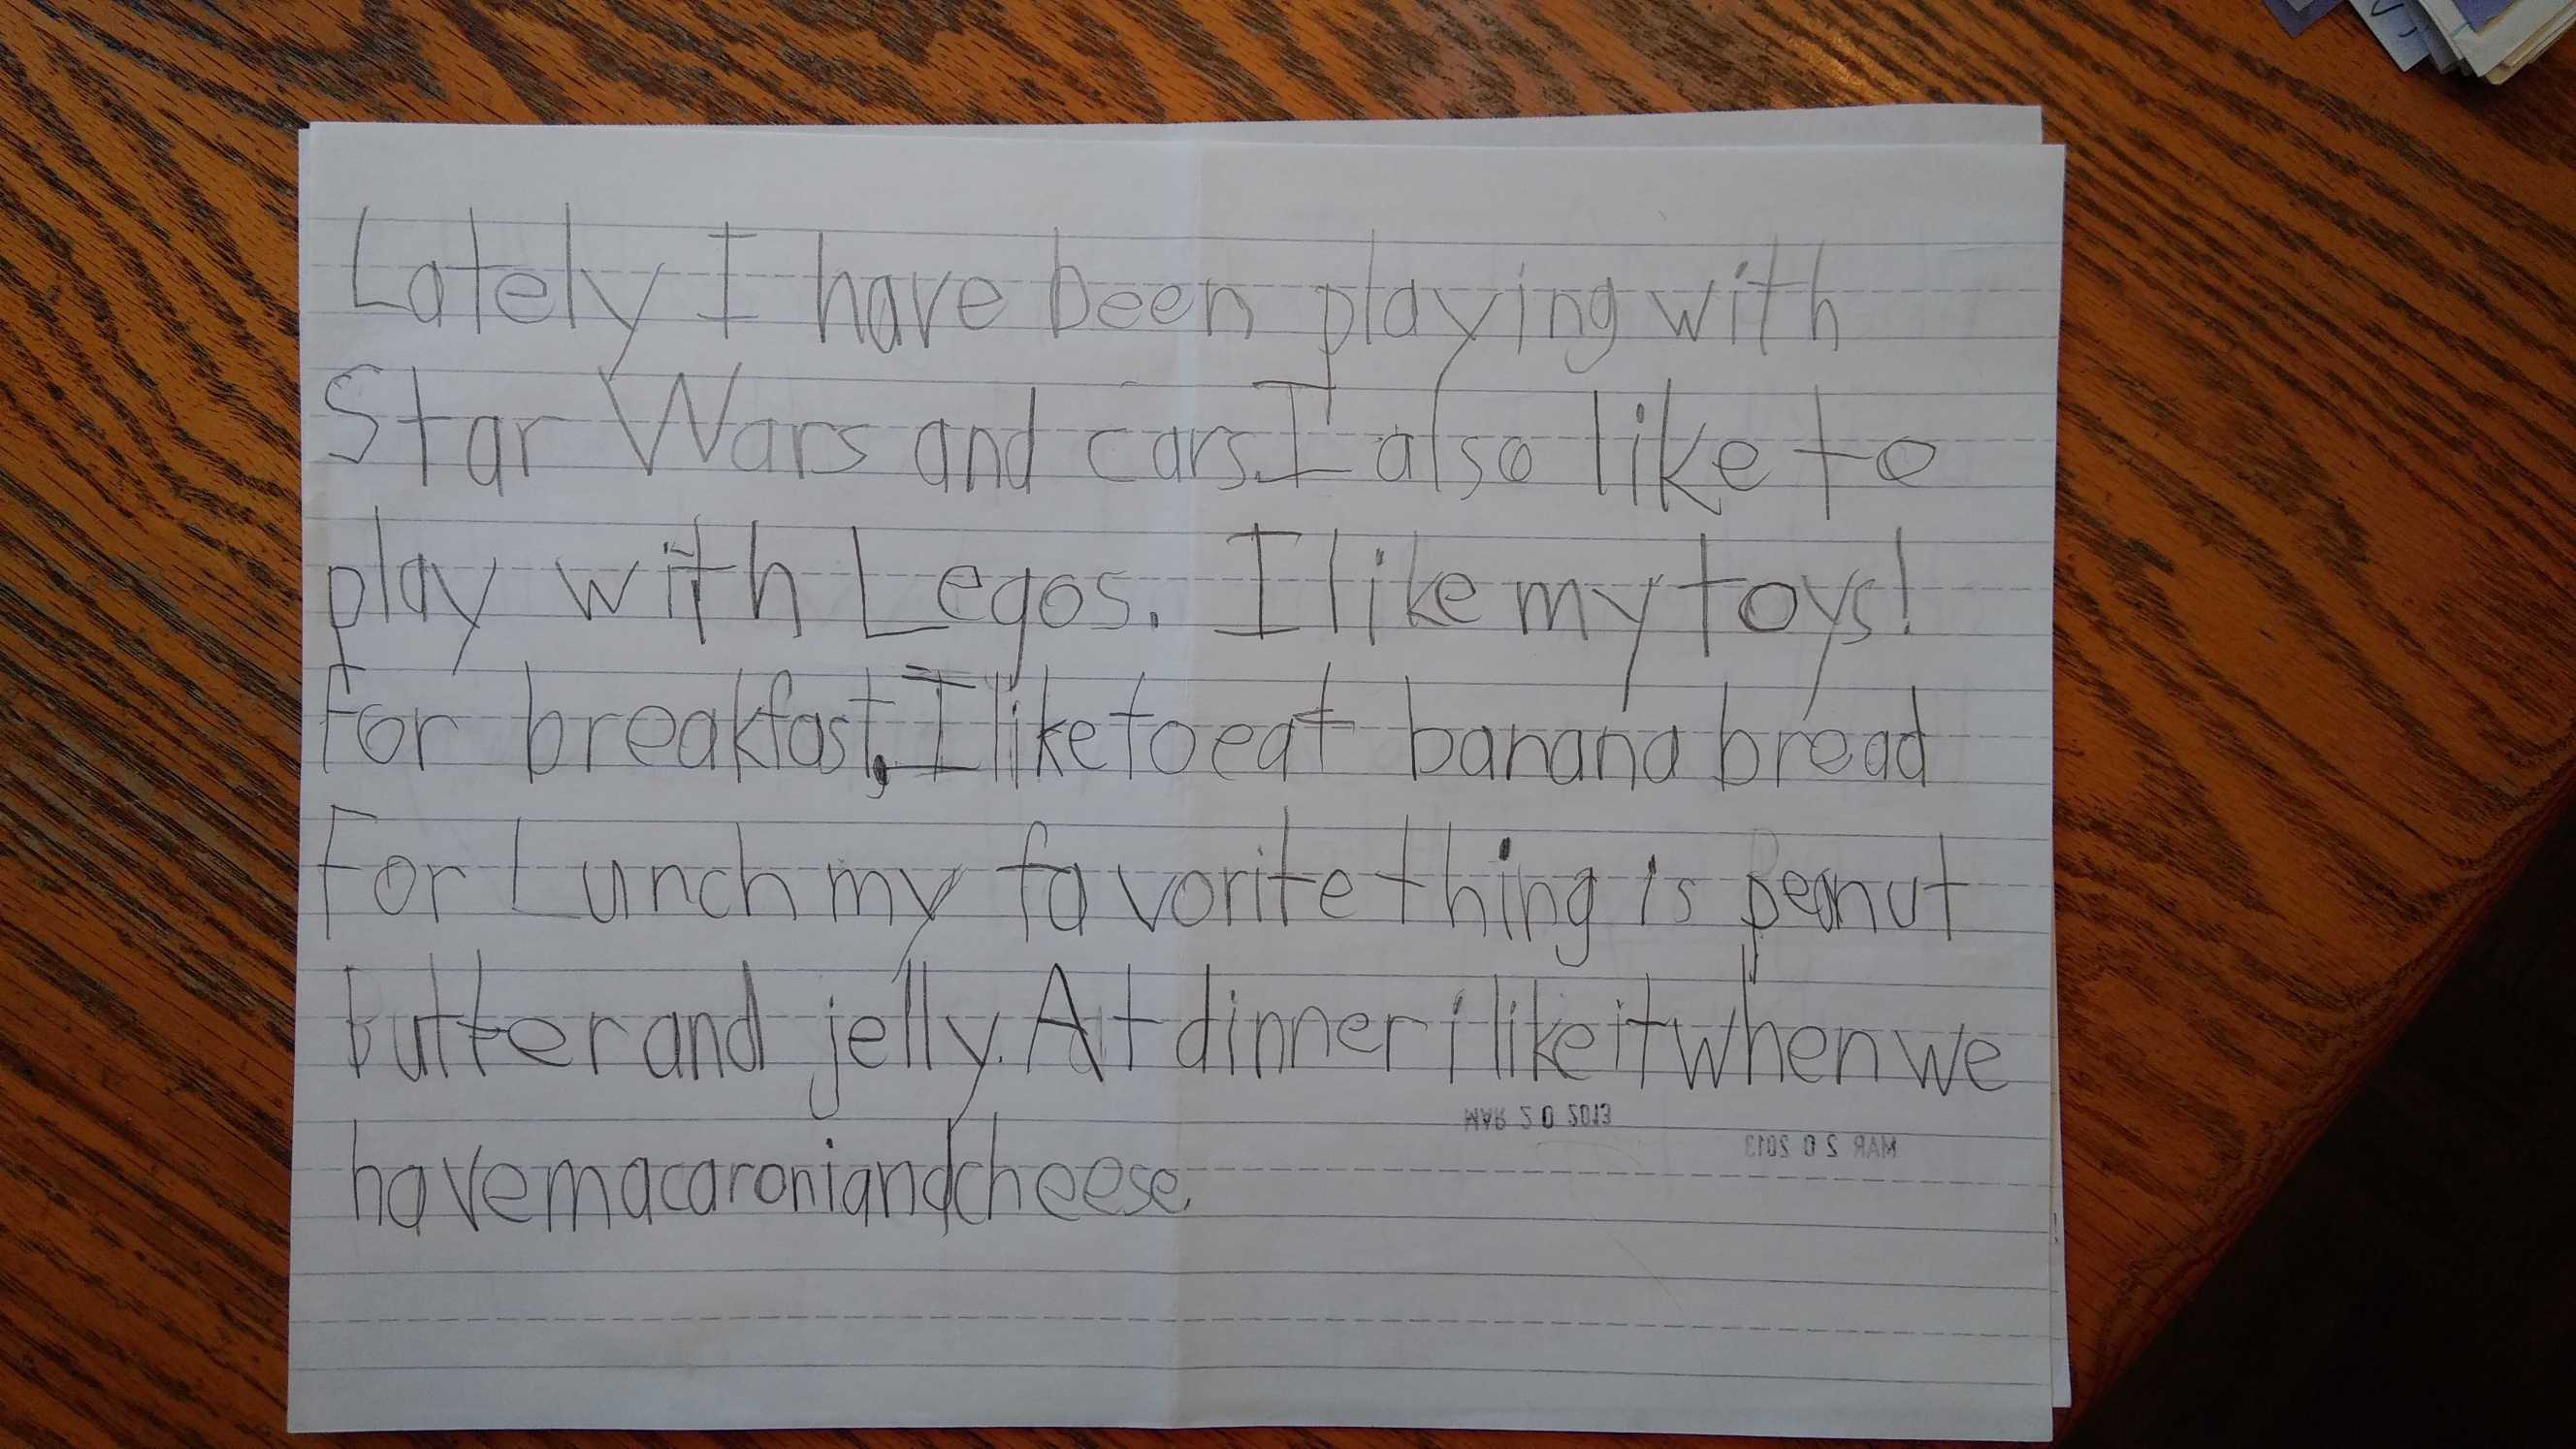 Lately I have been playing with
Star Wars and cars. I also like to
play with Legos. I like my toys!
For breakfast, I like to eat banana bread
For Lunch my favorite thing is peanut
Butter and jelly. At dinner i like it when we
have macaroni and cheese.
MAR 20 2013
MAR 20 2013